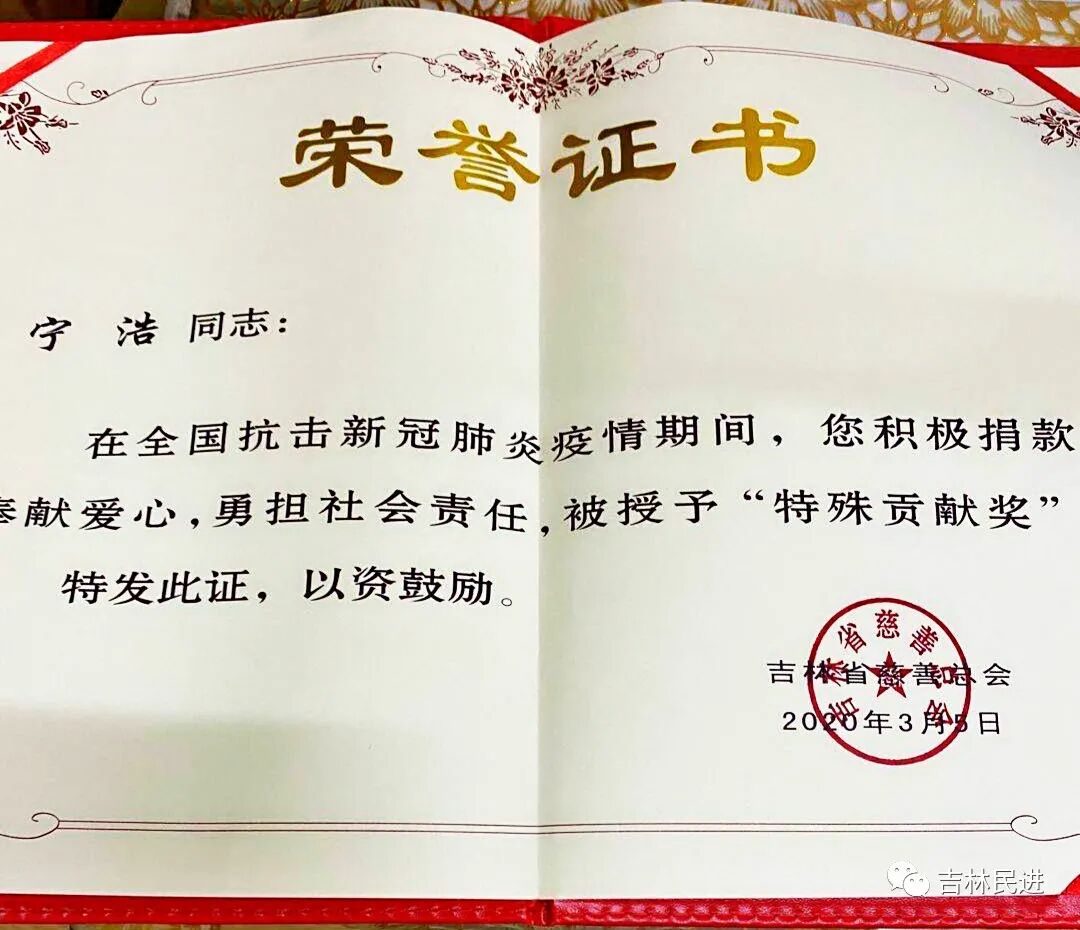 荣誉证书
宁浩同志：
在全国抗击新冠肺炎疫情期间，您积极捐款
奉献爱心，勇担社会责任，被授予“特殊贡献奖”
特发此证，以资鼓励。
吉林省慈善总会
吉林省慈善总会
2020年3月5日
吉林民进